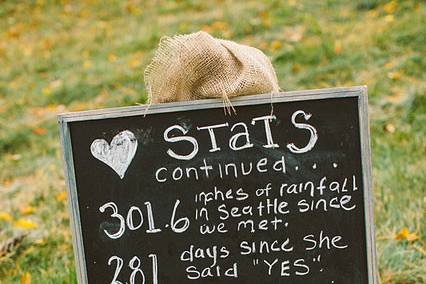 Stats
continued...
301.6 inches of rainfall
in Seattle since
we met.
281 days since She
said "YES".